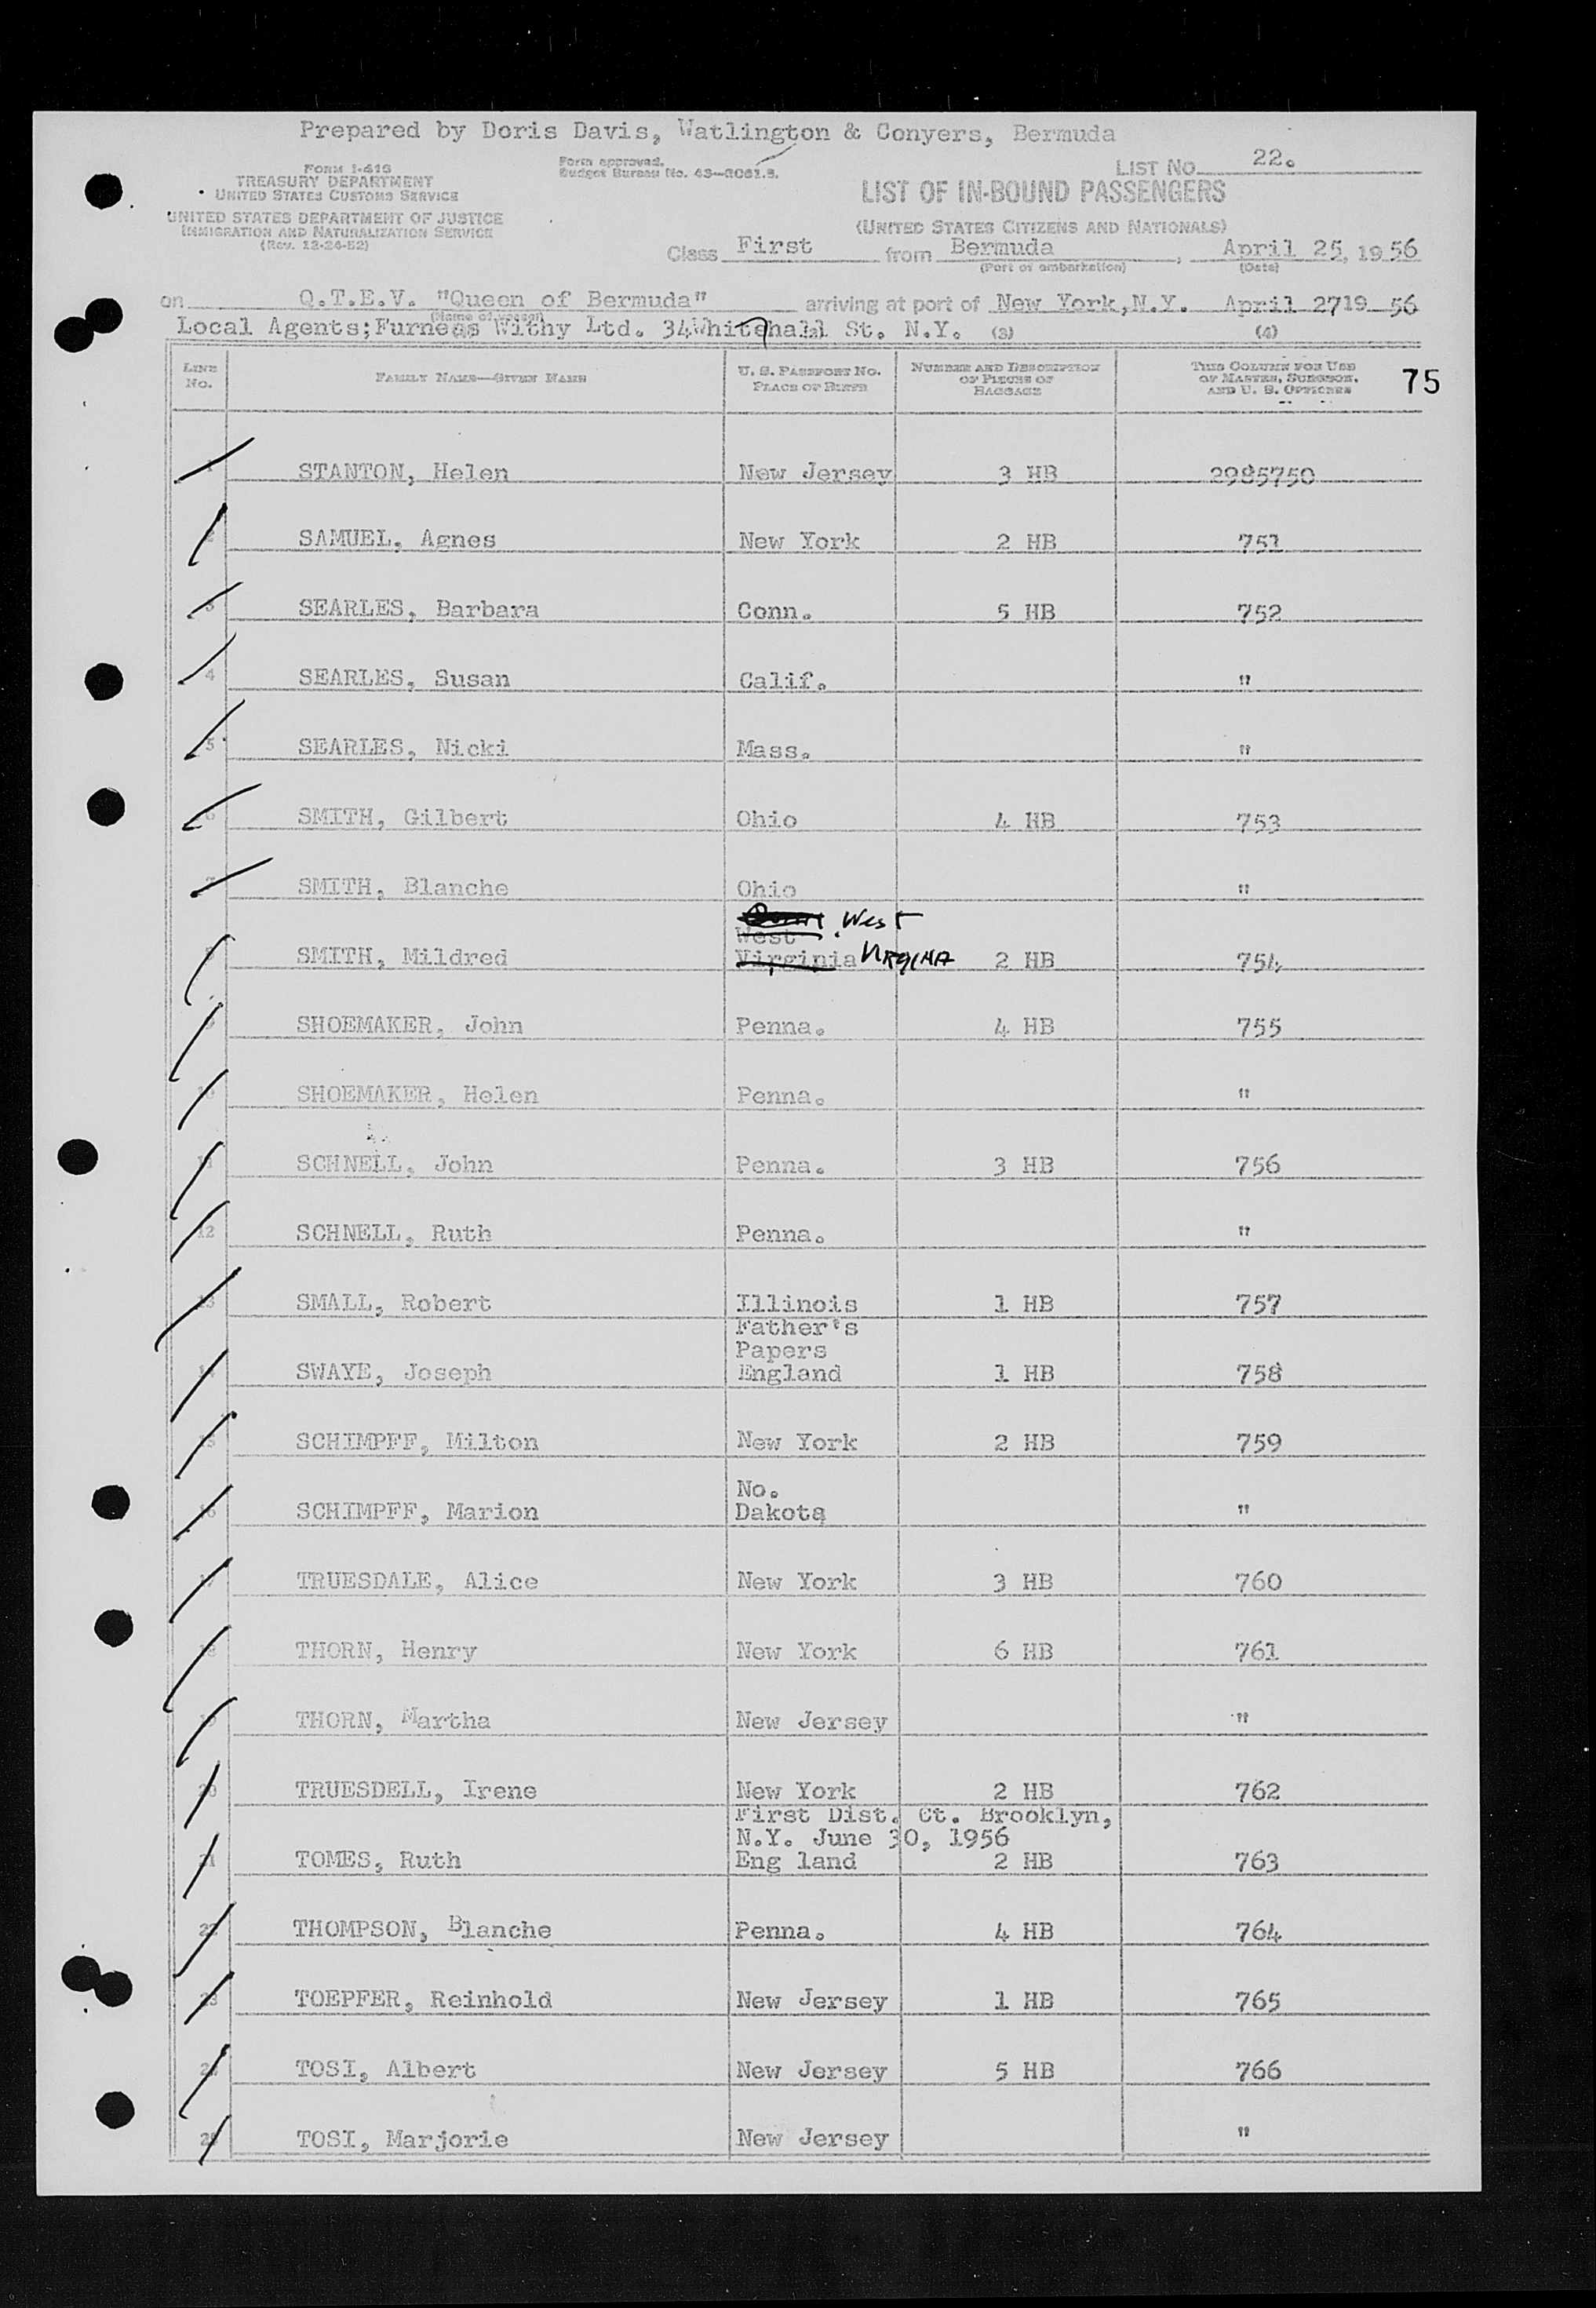 Prepared by Doris Davis, Watlington & Conyers, Bermuda
FORM I-418
TREASURY DEPARTMENT
UNITED STATES CUSTOMS SERVICE
UNITED STATES DEPARTMENT OF JUSTICE
IMMIGRATION AND NATURALIZATION SERVICE
(Rev. 12-24-52)
Form approved.
Budget Bureau No. 43-R061.3.
LIST No. 22.
LIST OF IN-BOUND PASSENGERS
(UNITED STATES CITIZENS AND NATIONALS)
Class First from Bermuda, April 25, 1956
(Port of embarkation) (Date)
on Q.T.E.V. "Queen of Bermuda" arriving at port of New York, N.Y. April 27 19 56
(Name of vessel)
Local Agents; Furness Withy Ltd. 34 Whitehall St. N.Y. (3) (4)
LINE No. FAMILY NAME—GIVEN NAME U. S. PASSPORT NO. PLACE OF BIRTH NUMBER AND DESCRIPTION OF PIECES OF BAGGAGE THIS COLUMN FOR USE OF MASTER, SURGEON, AND U. S. OFFICERS 75
1 STANTON, Helen New Jersey 3 HB 2985750
2 SAMUEL, Agnes New York 2 HB 751
3 SEARLES, Barbara Conn. 5 HB 752
4 SEARLES, Susan Calif. "
5 SEARLES, Nicki Mass. "
6 SMITH, Gilbert Ohio 4 HB 753
7 SMITH, Blanche Ohio "
West
West
8 SMITH, Mildred Virginia Virginia 2 HB 754
9 SHOEMAKER, John Penna. 4 HB 755
10 SHOEMAKER, Helen Penna. "
11 SCHNELL, John Penna. 3 HB 756
12 SCHNELL, Ruth Penna. "
13 SMALL, Robert Illinois 1 HB 757
Father's
Papers
14 SWAYE, Joseph England 1 HB 758
15 SCHIMPFF, Milton New York 2 HB 759
No.
16 SCHIMPFF, Marion Dakota "
17 TRUESDALE, Alice New York 3 HB 760
18 THORN, Henry New York 6 HB 761
19 THORN, Martha New Jersey "
20 TRUESDELL, Irene New York 2 HB 762
First Dist. Ct. Brooklyn,
N.Y. June 30, 1956
21 TOMES, Ruth Eng land 2 HB 763
22 THOMPSON, Blanche Penna. 4 HB 764
23 TOEPFER, Reinhold New Jersey 1 HB 765
24 TOSI, Albert New Jersey 5 HB 766
25 TOSI, Marjorie New Jersey "